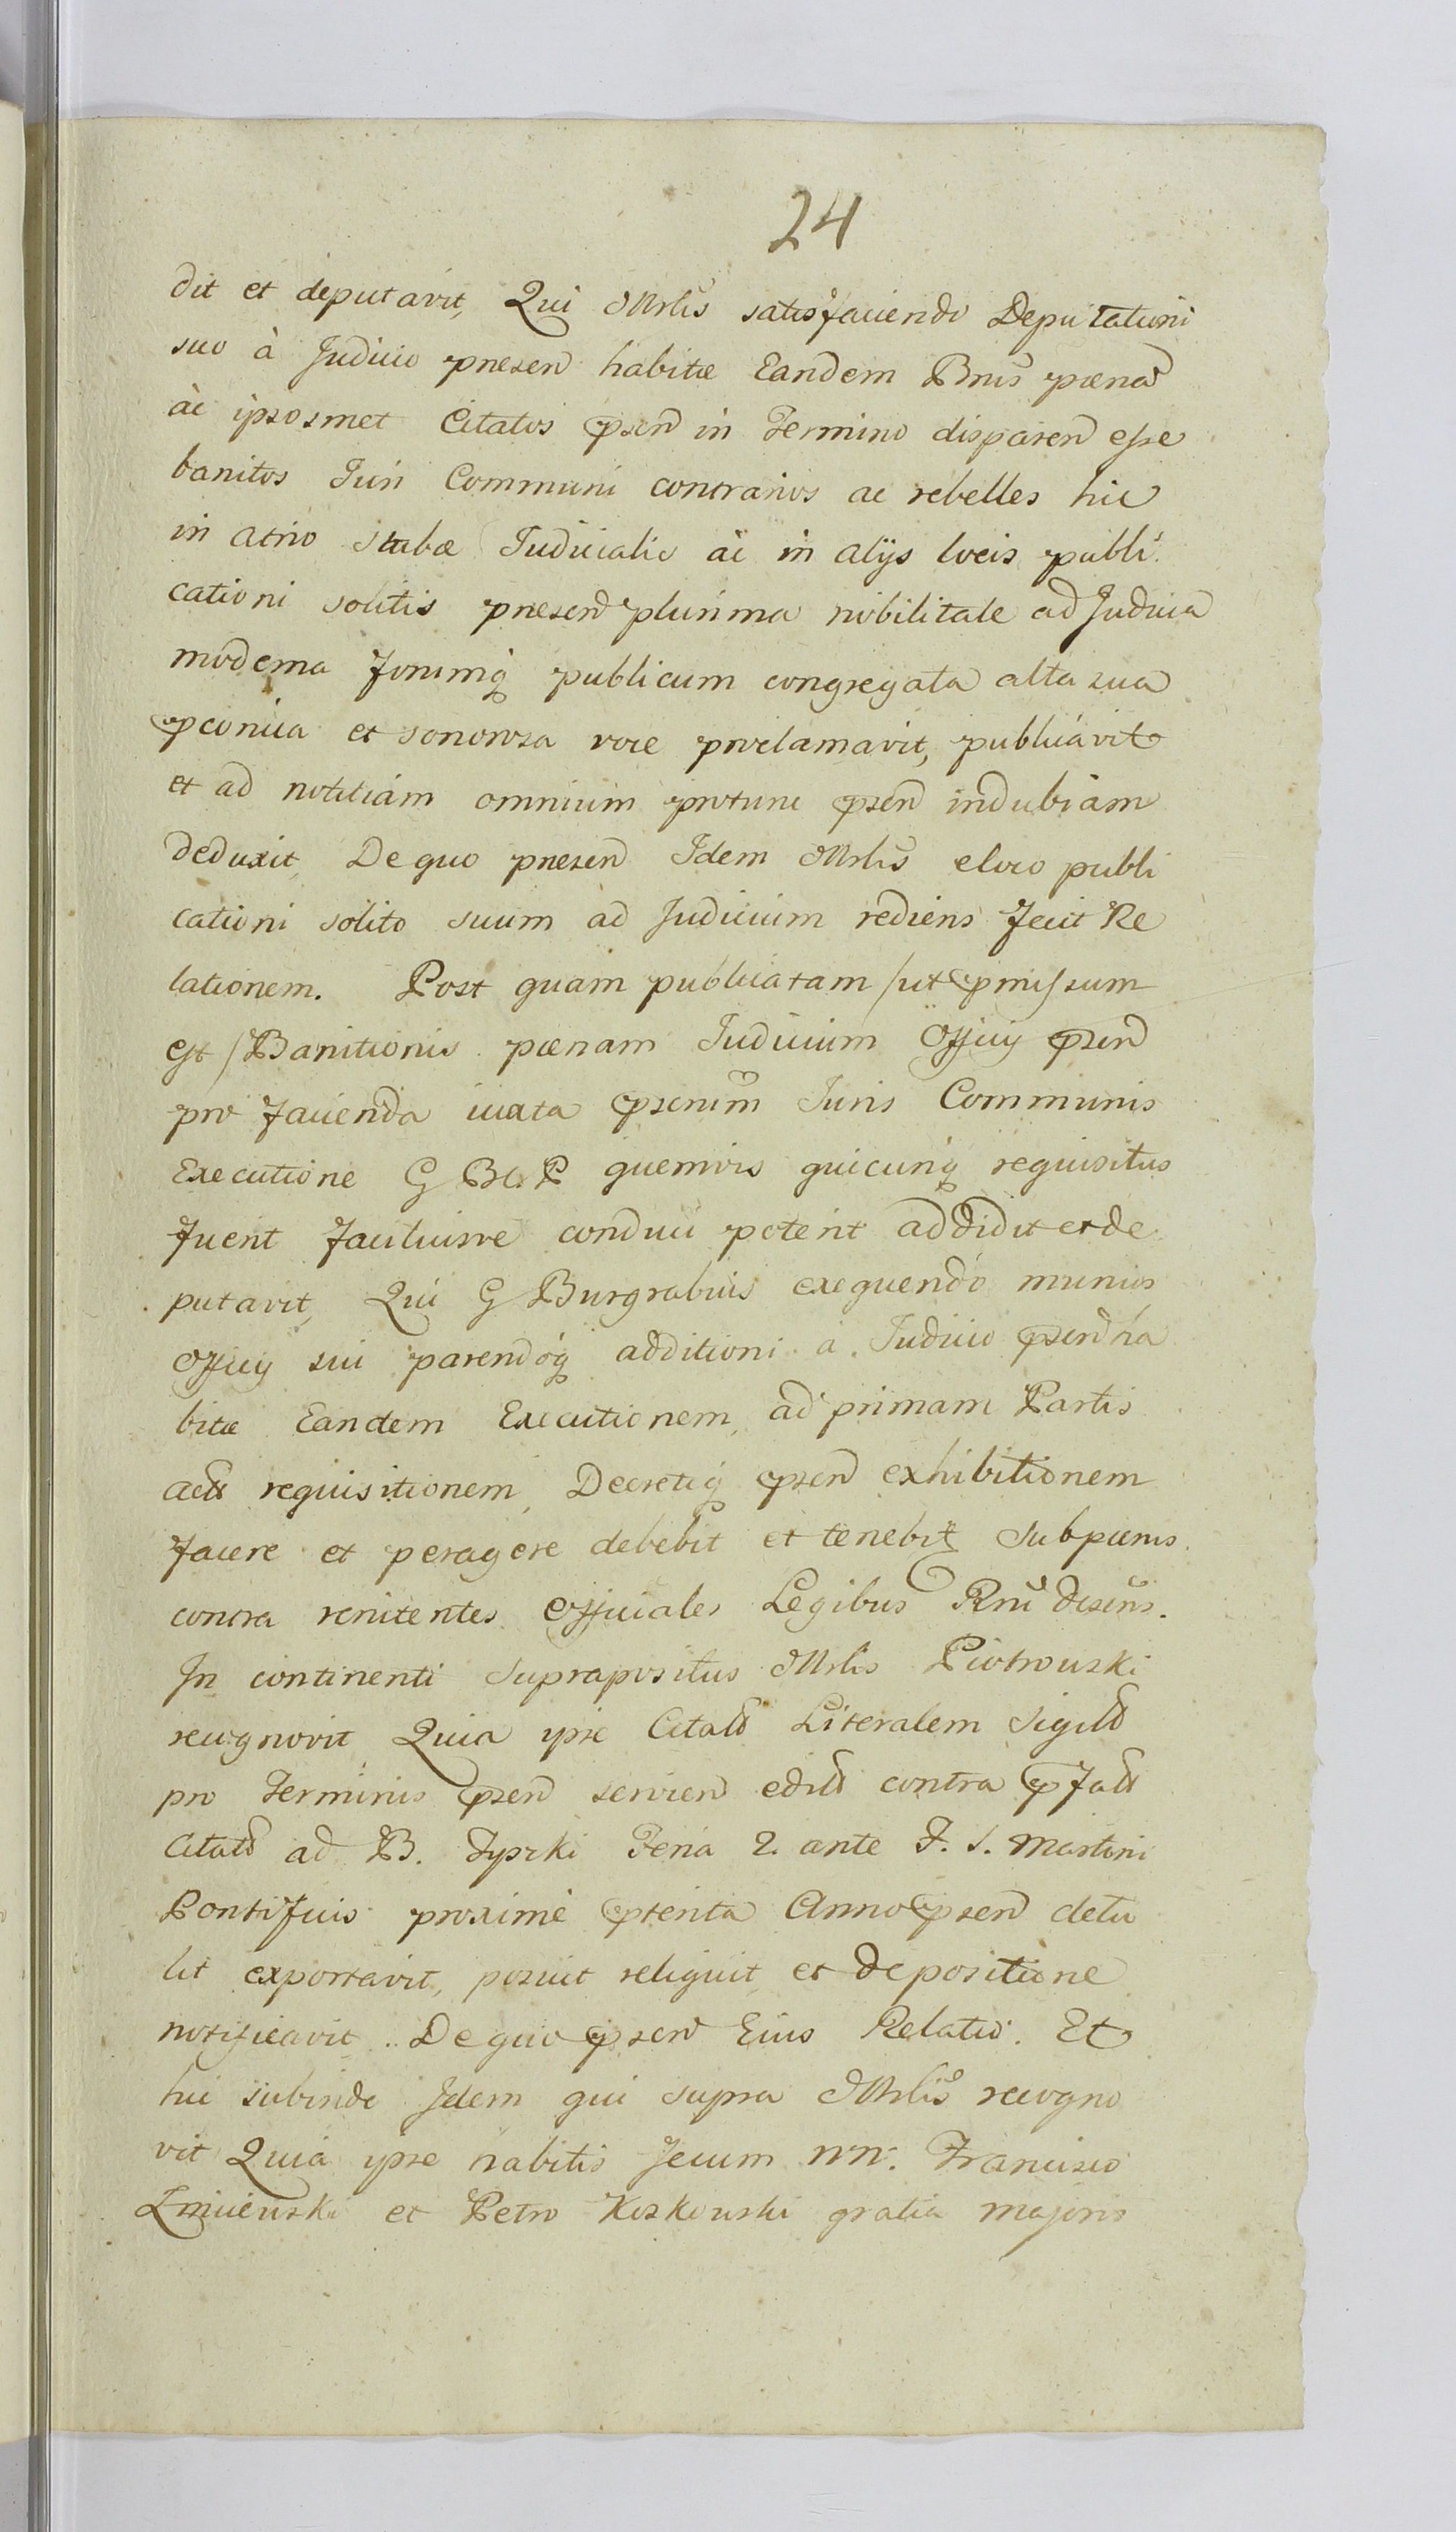 24
dit et deputavit, Qui Mrlis satisfaciendo Deputationi
suo à Judicio presen habitæ Eandem Bnis pænã
ac ipsosmet Citatos psen in Termino disparen esse
banitos Juri Communi contrarios ac rebelles hic
in atrio stubæ Judicialis ac in alÿs locis publi
cationi solitis presen plurima nobilitate ad Judicia
moderna forumq publicum congregata alta sua
pconica et sonorosa voce proclamavit, publicavit
et ad notitiam omnium protunc psen indubiam
deduxit, De quo presen Idem Mrlis e loco publi
cationi solito suum ad Judicium rediens fecit Re
lationem. Post quam publicatam /ut pmissum
est/ Banitionis pænam Judicium Officÿ psen
pro facienda iuxta pscrium Juris Communis
Executione G B. C. P quemvis quicunq requisitus
fuerit faciliusve conduci poterit addidit et de
putavit, Qui G Burgrabius exequendo munus
Officÿ sui parendoq additioni à Judicio psen ha
bitæ Eandem Executionem, ad primam Partis
actã requisitionem, Decretiq psen exhibitionem
facere et peragere debebit et tenebit sub pænis
contra renitentes Officiales Legibus Rni descris.
In continenti Suprapositus Mrlis Piotrowski
recognovit Quia ipse Citatã Literalem Sigillã
pro Terminis psen servien editã contra pfatã
Citatã ad B. Tyszki Feria 2. ante F. S. Martini
Pontificis proxime pterita Anno psen detu
lit exportavit, posuit reliquit et depositione
notificavit. De quo psen Eius Relatio. Et
hic subinde Idem qui supra Mrlis recogno
vit Quia ipse habitis secum NN. Francisco
et Petro Koskowski gratia majoris